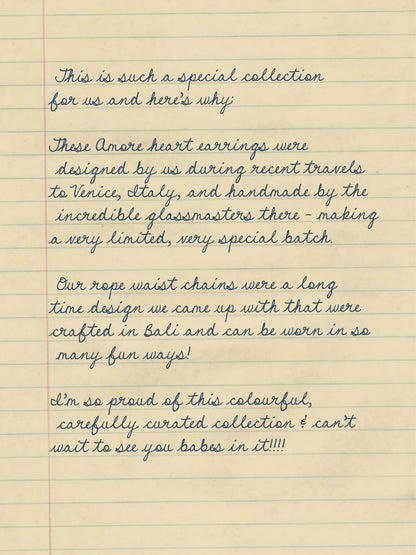 This is such a special collection
for us and here's why;
These Amore heart earrings were
designed by us during recent travels
to Venice, Italy, and handmade by the
incredible glassmasters there - making
a very limited, very special batch.
Our rope waist chains were a long
time design we came up with that were
crafted in Bali and can be worn in so
many fun ways!
I'm so proud of this colourful,
carefully curated collection & can't
wait to see you babes in it!!!!